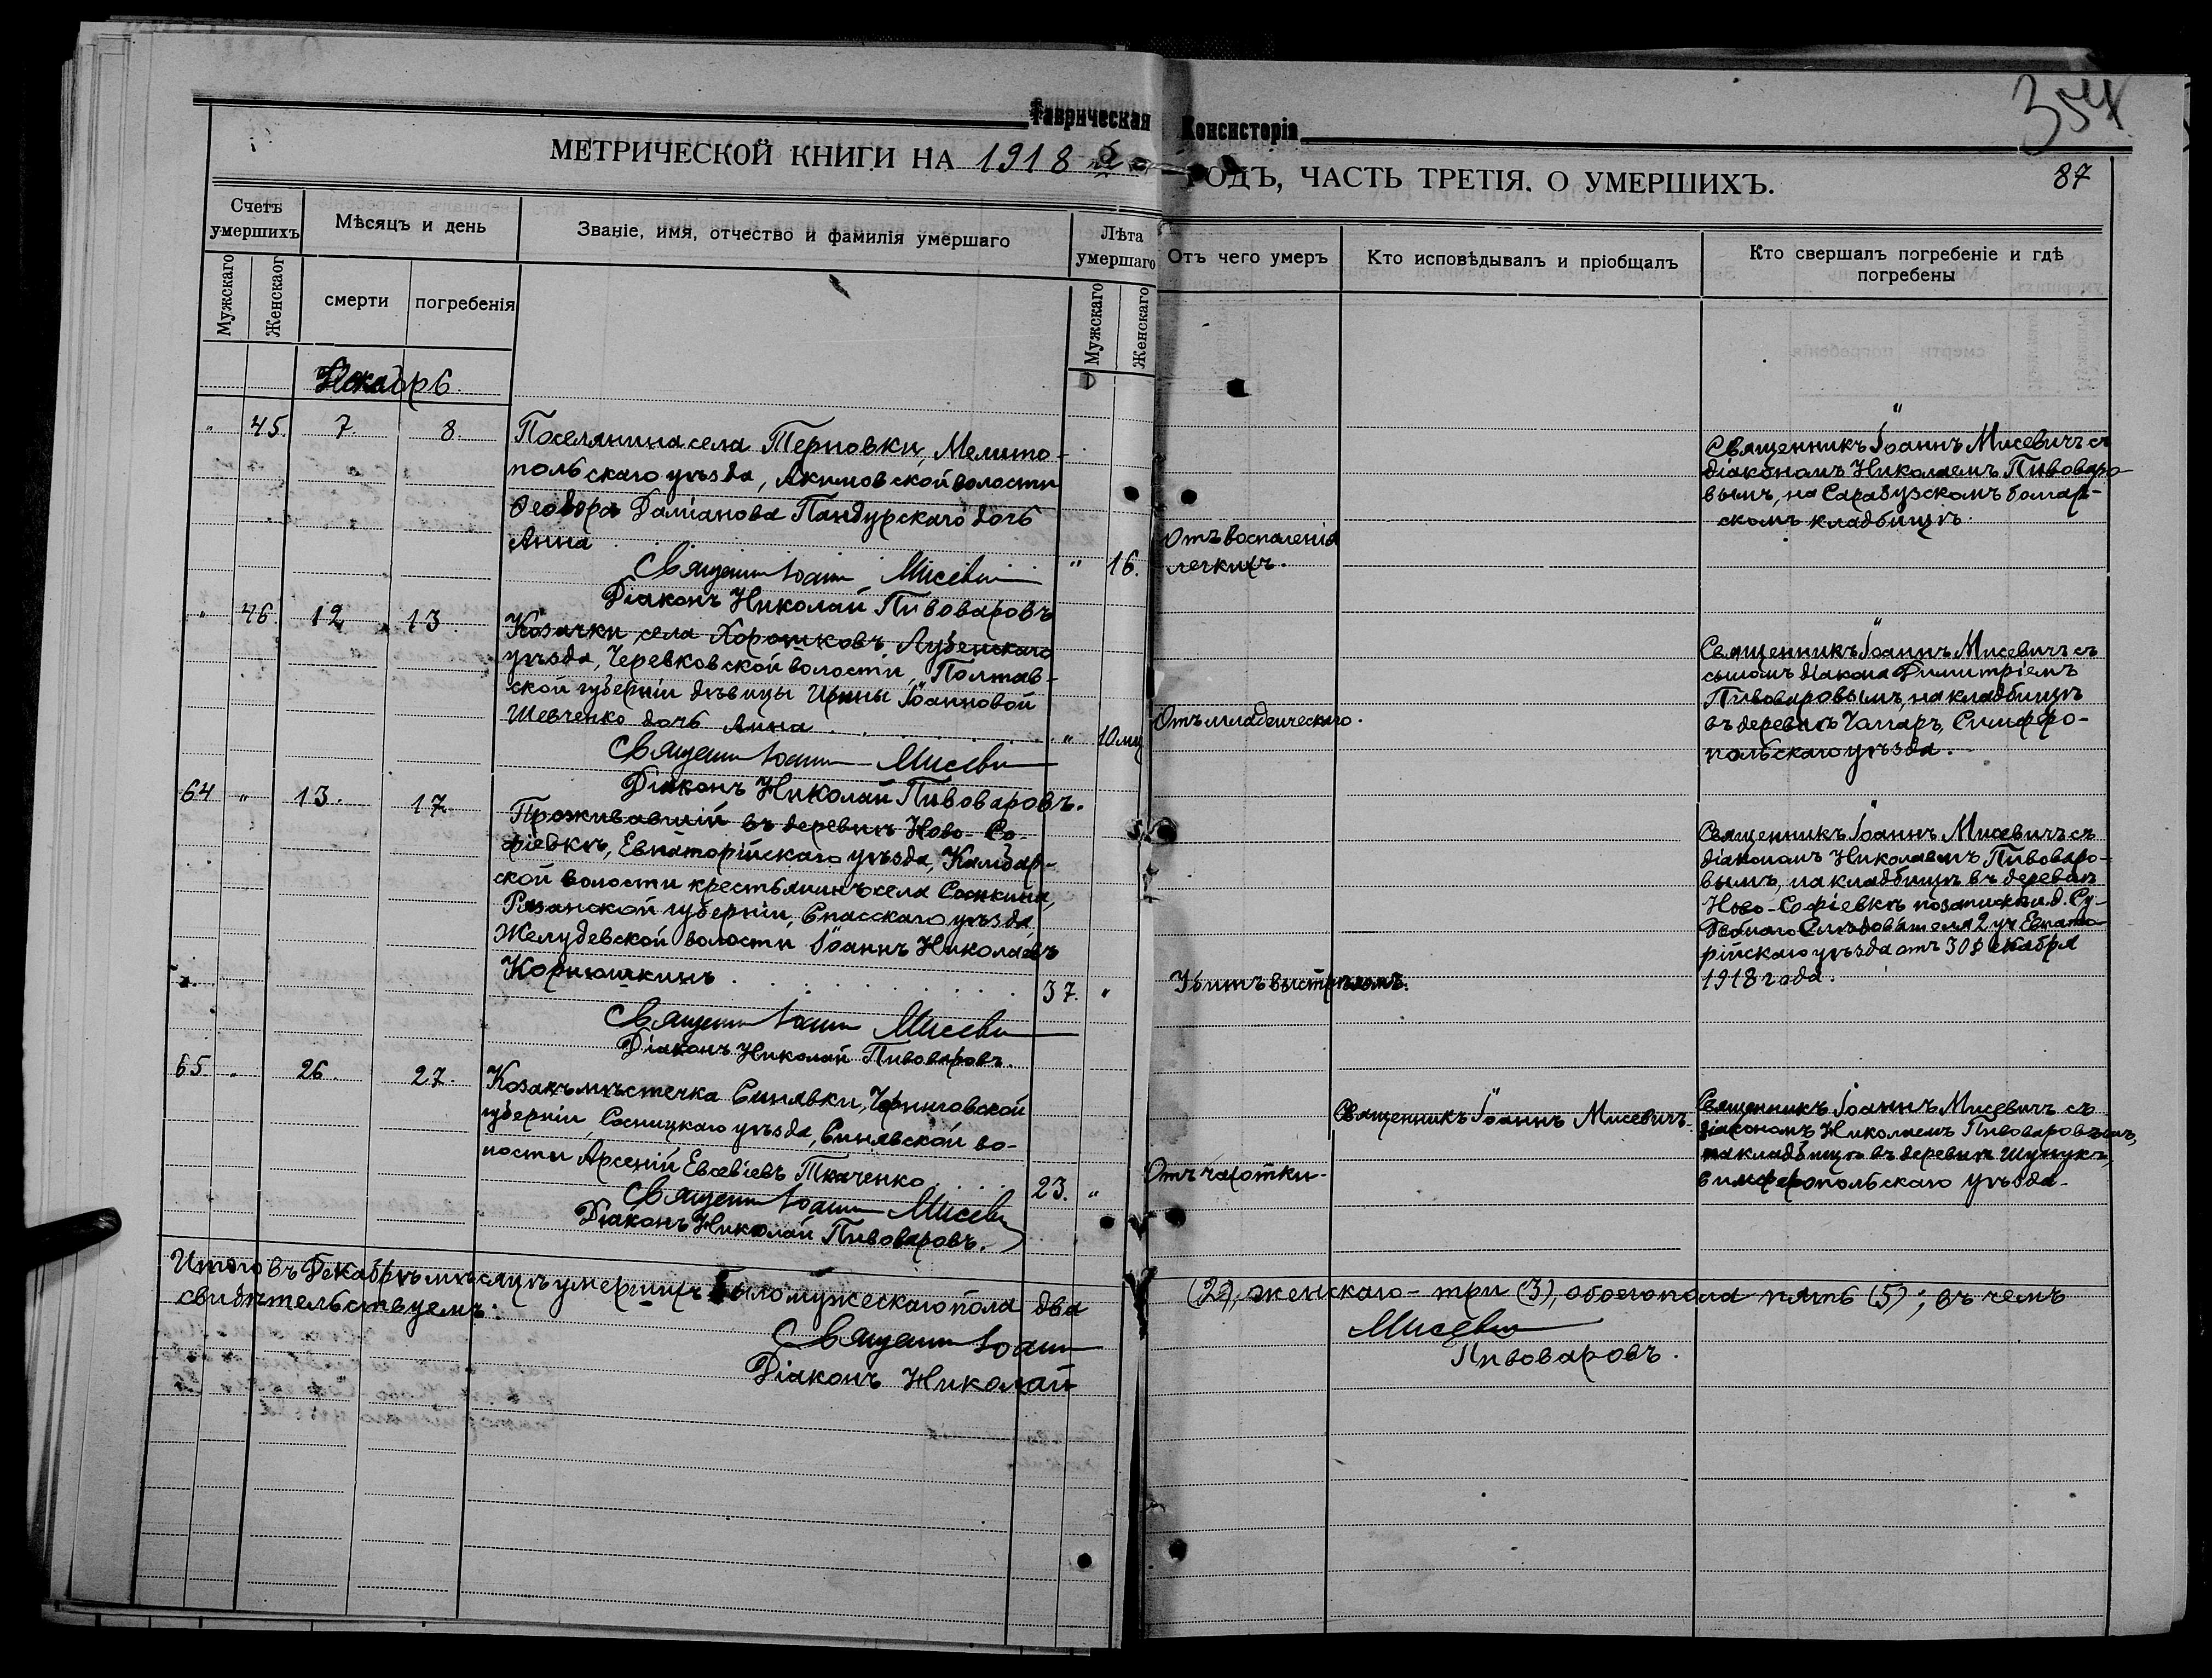 354
Таврическая Консисторія
МЕТРИЧЕСКОЙ КНИГИ НА 1918 й ГОДЪ, ЧАСТЬ ТРЕТІЯ. О УМЕРШИХЪ.
87
Счетъ умершихъ
Мѣсяцъ и день
Званіе, имя, отчество и фамилія умершаго
Лѣта умершаго
Отъ чего умеръ
Кто исповѣдывалъ и пріобщалъ
Кто свершалъ погребеніе и гдѣ погребены
Мужскаго
Женскаог
смерти
погребенія
Мужскаго
Женскаго
Декабрь
" 45. 7. 8.
Поселянина села Терновки, Мелито-
польскаго уѣзда, Акимовской волости
Ѳеодора Даміанова Пандурскаго дочь
Анна
" 16.
Отъ воспаленія
легкихъ.
Священникъ Іоаннъ Мисевичъ съ
діакономъ Николаемъ Пивоваро-
вымъ, на Сарабузскомъ болгар-
скомъ кладбищѣ.
Священникъ Іоаннъ Мисевичъ
Діаконъ Николай Пивоваровъ
" 46. 12 13.
Козачки села Хорошковъ, Лубенскаго
уѣзда, Черевковской волости, Полтав-
ской губерніи дѣвицы Ирины Іоанновой
Шевченко дочь Анна
" 10 мц
Отъ младенческаго.
Священникъ Іоаннъ Мисевичъ съ
сыномъ діакона Димитріемъ
Пивоваровымъ, на кладбищѣ
въ деревнѣ Чаларъ, Симферо-
польскаго уѣзда.
Священникъ Іоаннъ Мисевичъ
Діаконъ Николай Пивоваровъ.
64 " 13. 17.
Проживавшій въ деревнѣ Ново-Со-
фіевкѣ, Евпаторійскаго уѣзда, Камбар-
ской волости крестьянинъ села
Рязанской губерніи, Спасскаго уѣзда,
Желудевской волости, Іоаннъ Николаевъ
Корнюшкинъ
37. "
Убитъ выстрѣломъ.
Священникъ Іоаннъ Мисевичъ съ
діакономъ Николаемъ Пивоваро-
вымъ, на кладбищѣ въ деревнѣ
Ново-Софіевкѣ по запискѣ и.д. Су-
дебнаго Слѣдователя 2 уч. Евпато-
рійскаго уѣзда отъ 30 декабря
1918 года.
Священникъ Іоаннъ Мисевичъ
Діаконъ Николай Пивоваровъ.
65. " 26. 27.
Козакъ мѣстечка Синявки, Черниговской
губерніи, Сосницкаго уѣзда, Синявской во-
лости Арсеній Евсевіевъ Ткаченко
23. "
Отъ чахотки
Священникъ Іоаннъ Мисевичъ.
Священникъ Іоаннъ Мисевичъ съ
діакономъ Николаемъ Пивоваровымъ,
на кладбищѣ въ деревнѣ Шунукъ,
Симферопольскаго уѣзда.
Священникъ Іоаннъ Мисевичъ
Діаконъ Николай Пивоваровъ.
Итого въ Декабрѣ мѣсяцѣ умершихъ было мужескаго пола два (2), женскаго - три (3), обоего пола пять (5); въ чемъ
свидѣтельствуемъ:
Священникъ Іоаннъ Мисевичъ
Діаконъ Николай Пивоваровъ.